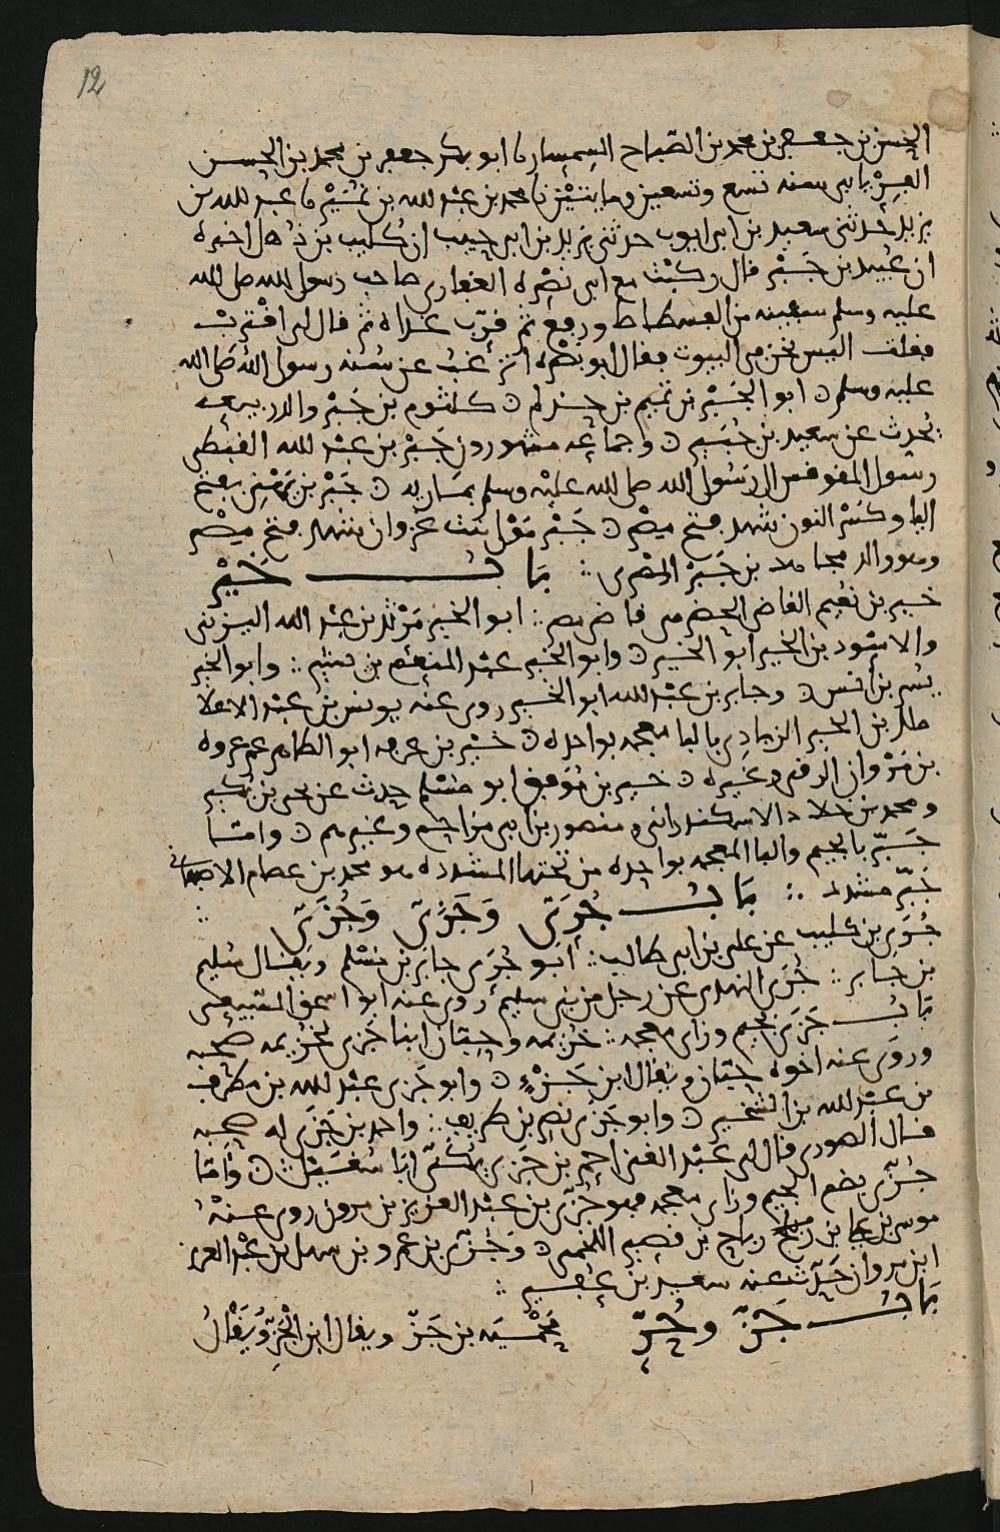 12
الحسن بن جعفر بن محمد بن الصباح السمسار نا ابو بكر جعفر بن محمد بن الحسن
الفريابي سنه تسع وتسعين ومايتين نا محمد بن عبد الله بن نمير نا عبد الله بن
يزيد حدثني سعيد بن ابي ايوب حدثني يزيد بن ابي حبيب ان كليب بن ذهل اخبره
ان عبيد بن جبر قال ركبت مع ابي نصره الغفاري صاحب رسول الله صلى الله
عليه وسلم سفينه من الفسطاط ودفع ثم قرب غداه ثم قال لي اقترب
فقلت اليس نحن من البيوت فقال ابو بصره اترغب عن سنه رسول الله صلى الله
عليه وسلم ابو الجبر بن تميم بن حذلم كلثوم بن جبر والد ربيعه
يحدث عن سعيد بن جبير وجماعه مشهورون جبر بن عبد الله القبطي
رسول المقوقس الى رسول الله صلى الله عليه وسلم بماريه جبر بن بفتح
اليا وكسر النون شهد فتح مصر جبر مولى بنت غزوان شهد فتح مصر
وهو والد مجاهد بن جبر المصري باب خير
خير بن نعيم القاضي الحضرمي قاضي مصر ابو الخير مرثد بن عبد الله اليزني
والاسود بن الخير ابو الخير وابو الخير عبد المنعم بن بشير وابو الخير
بشر بن انس وجابر بن عبد الله ابو الخير روى عنه يونس بن عبد الاعلا
مالك بن الخير الزبادي باليا معجمه بواحده خير بن عرفه ابو الطاهر عم عروه
بن مروان الرقي وغيره خير بن موفق ابو مسلم حدث عن يحيى بن بكير
ومحمد بن خلاد الاسكندراني ومنصور بن ابي مزاحم وغيرهم واما
جبر بالجيم والبا المعجمه بواحده من تحتها المشدده هو محمد بن عصام الاصبهاني
جبر مشدد باب جري وجزي وجزي
جري بن كليب عن علي بن ابي طالب ابو جري جابر بن سليم ويقال سليم
بن جابر جري النهدي عن رجل من بني سليم روى عنه ابو اسحق السبيعي
باب جزي بجيم وزاي معجمه خزيمه وحبان ابنا جزي لخزيمه صحبه
وروى عنه اخوه حبان ويقال ابن جزء وابو جزي عبد الله بن مطرف
بن عبد الله بن الشخير وابو جزي نصر بن طريف واحمد بن جزي له صحبه
قال الصوري قال لي عبد الغني احمر بن جزي يكنى ابا شعيل واما
جزي بضم الجيم وزاي معجمه فهو جزي بن عبد العزيز بن مرون روى عنه
موسى بن علي بن رباح بن قصير اللخمي وجزي بن عمرو بن سهل بن عبد العزيز
ابن مروان حدث عنه سعيد بن عفير
باب جز وحر محميه بن جز ويقال ابن الجز ويقال